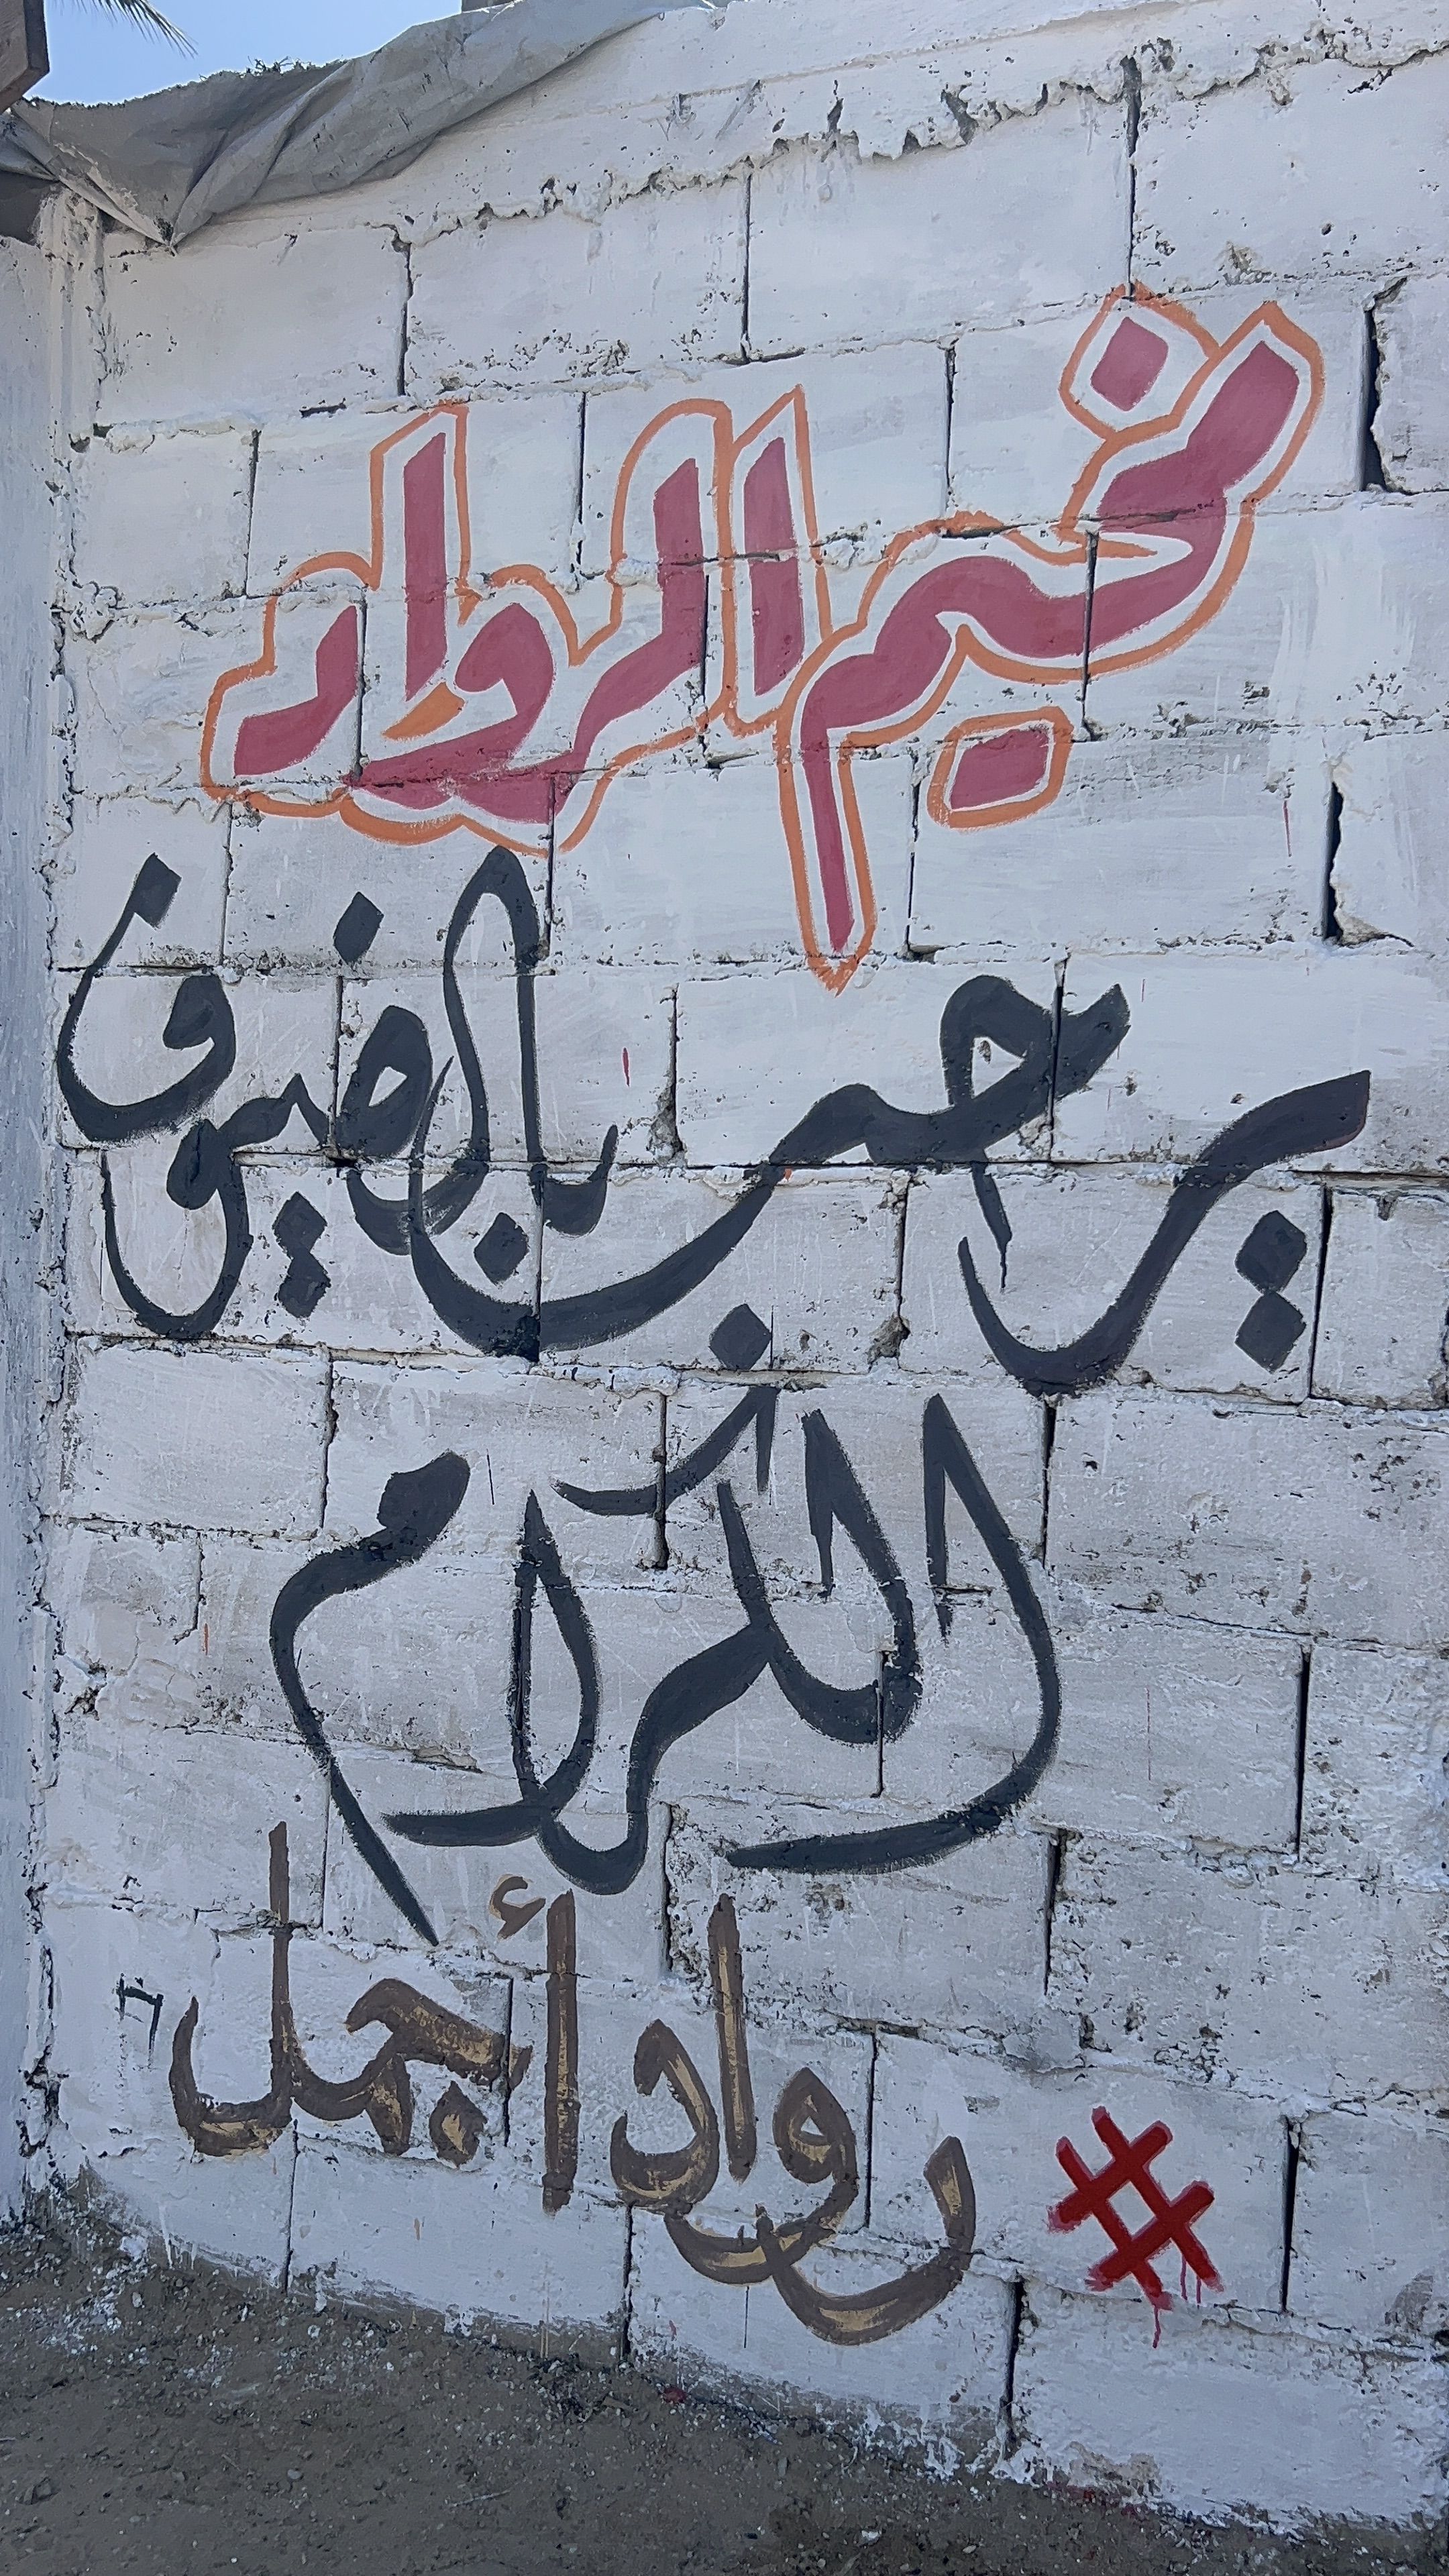 مخيم الرواد
يرحب بالضيوف
الكرام
#رواد أجمل